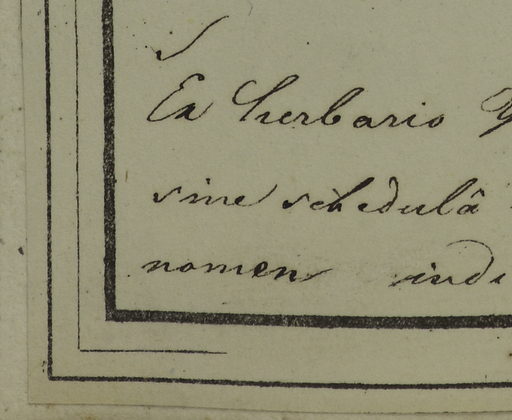 Ex herbario
sine schedulâ
nomen indi